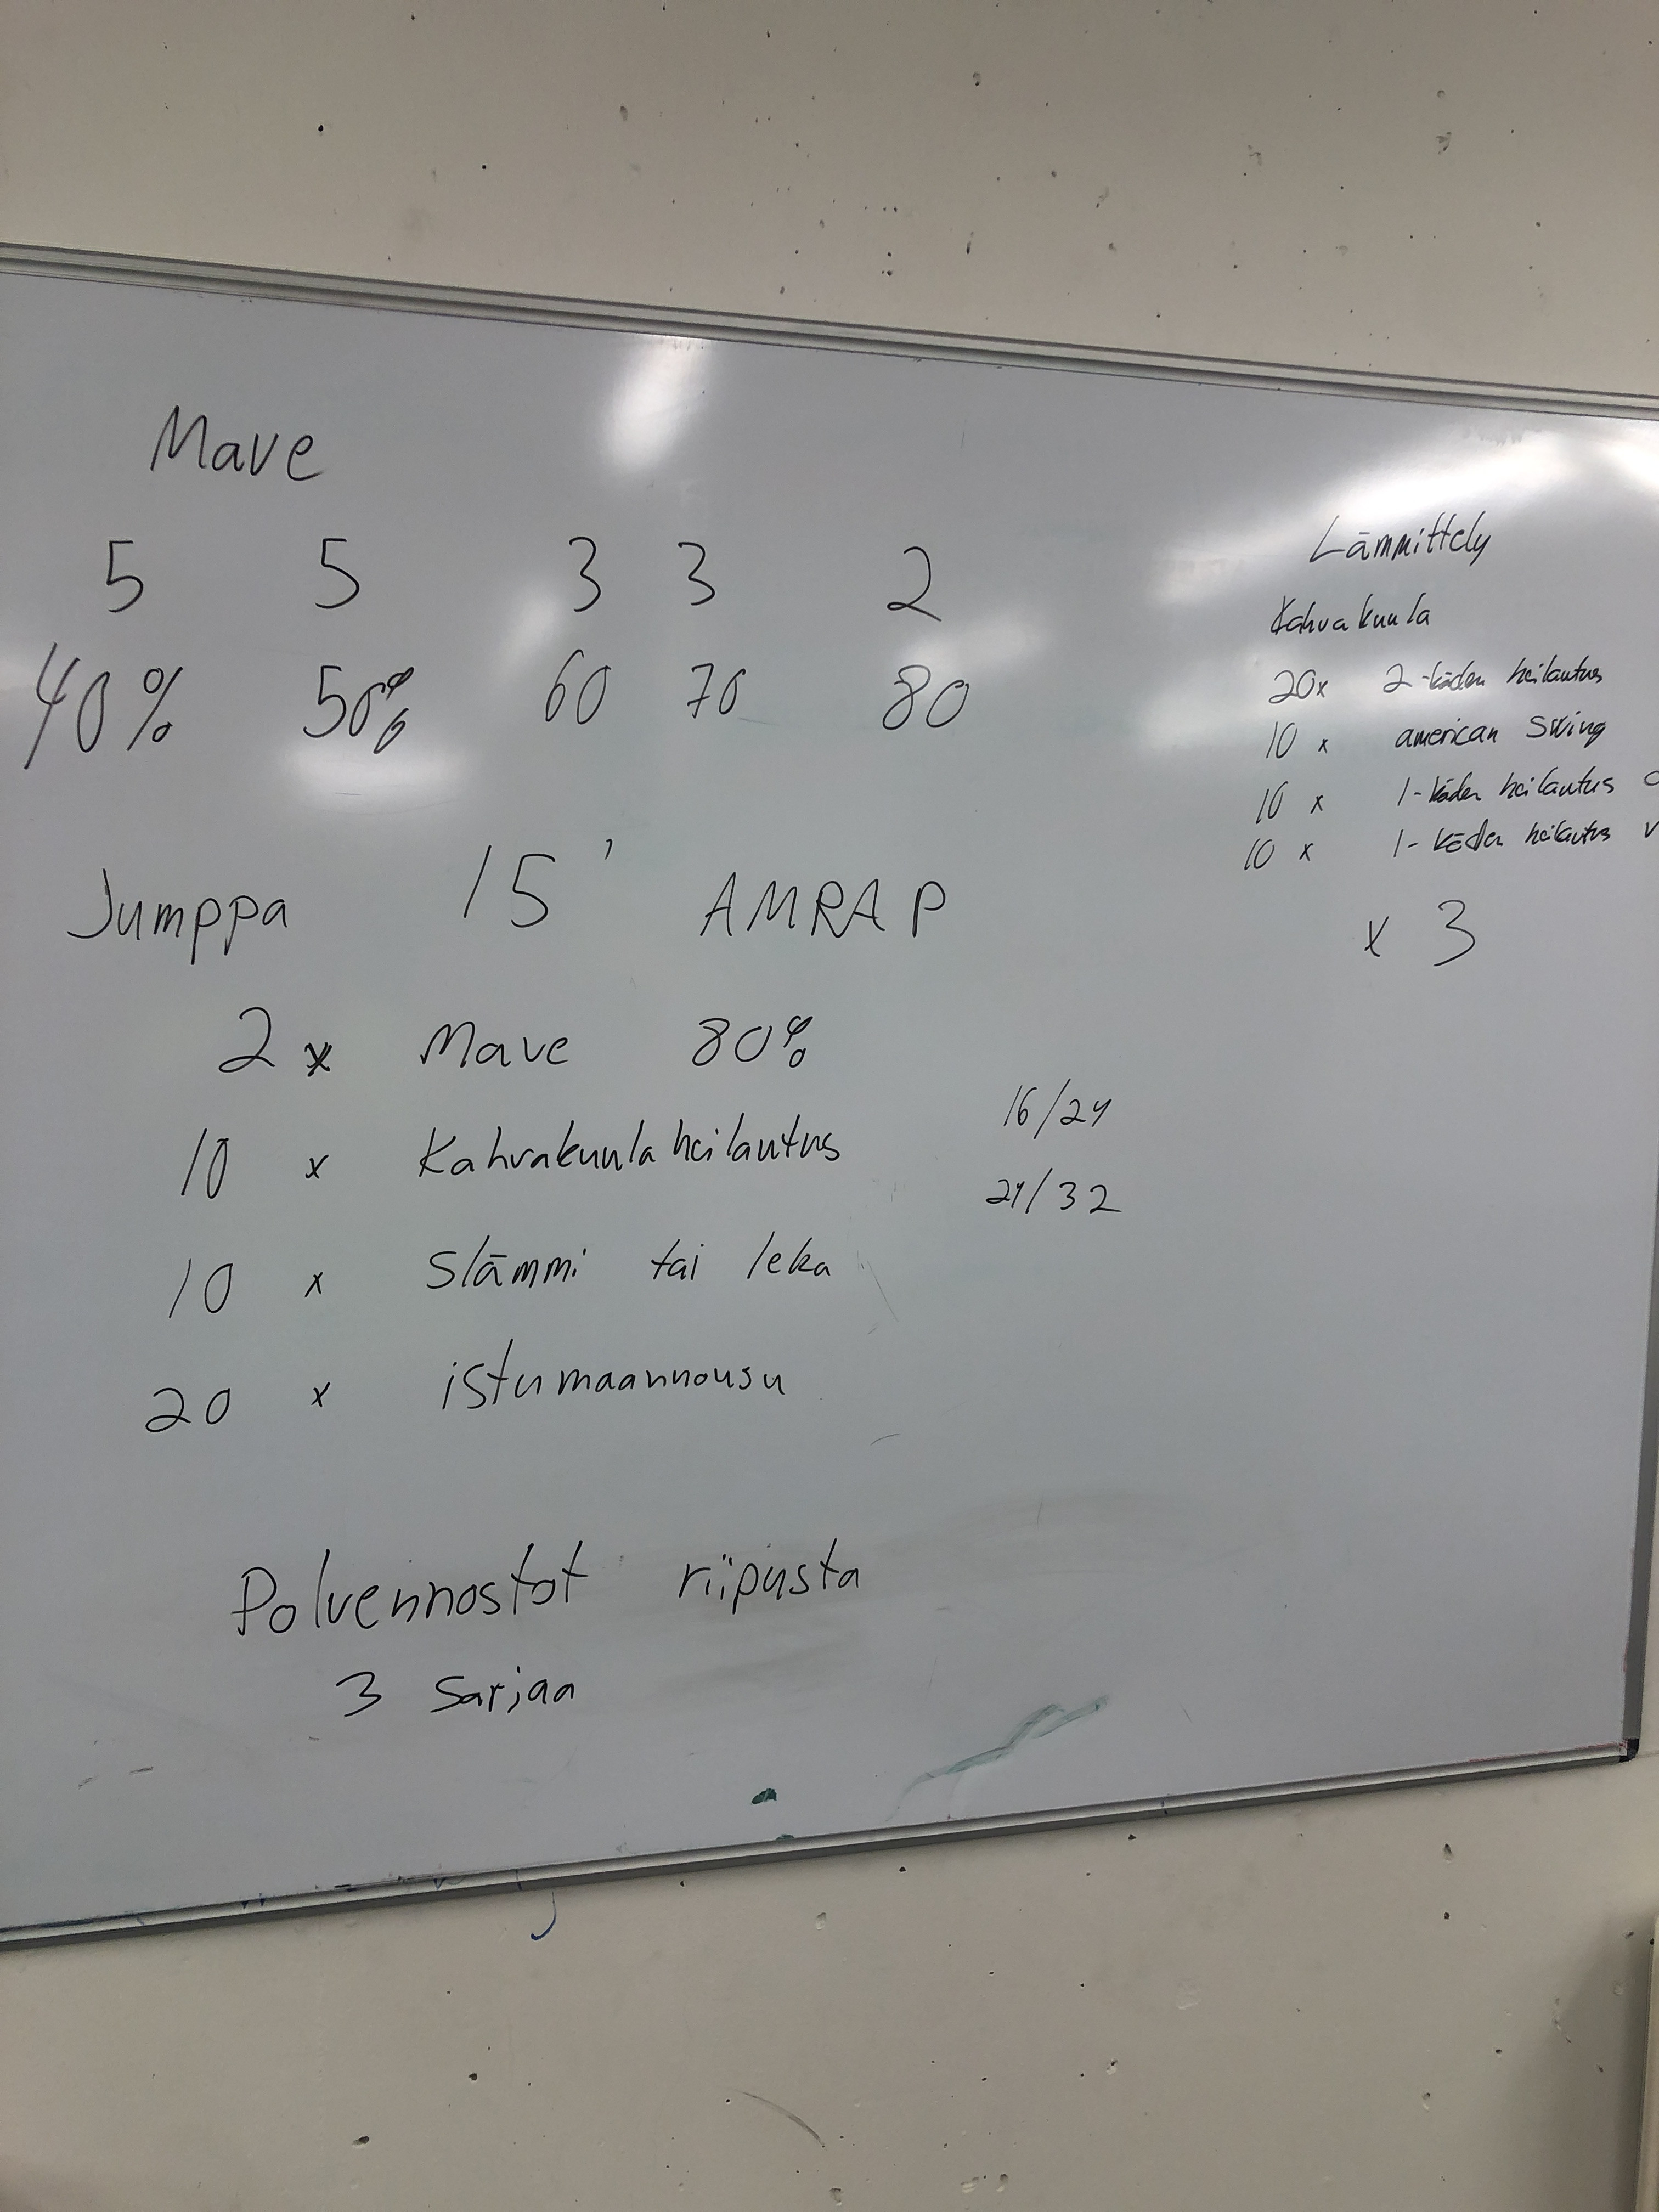 Mave
5 5 3 3 2
40% 50% 60 70 80
Jumppa 15' AMRAP
2 x Mave 80%
10 x Kahvakuulaheilautus 16/24
24/32
10 x Slämmi tai leka
20 x istumaannousu
Polvennostot riipusta
3 sarjaa
Lämmittely
Kahvakuula
20x 2-käden heilautus
10 x american swing
10 x 1-käden heilautus
10 x 1-käden heilautus v
x 3